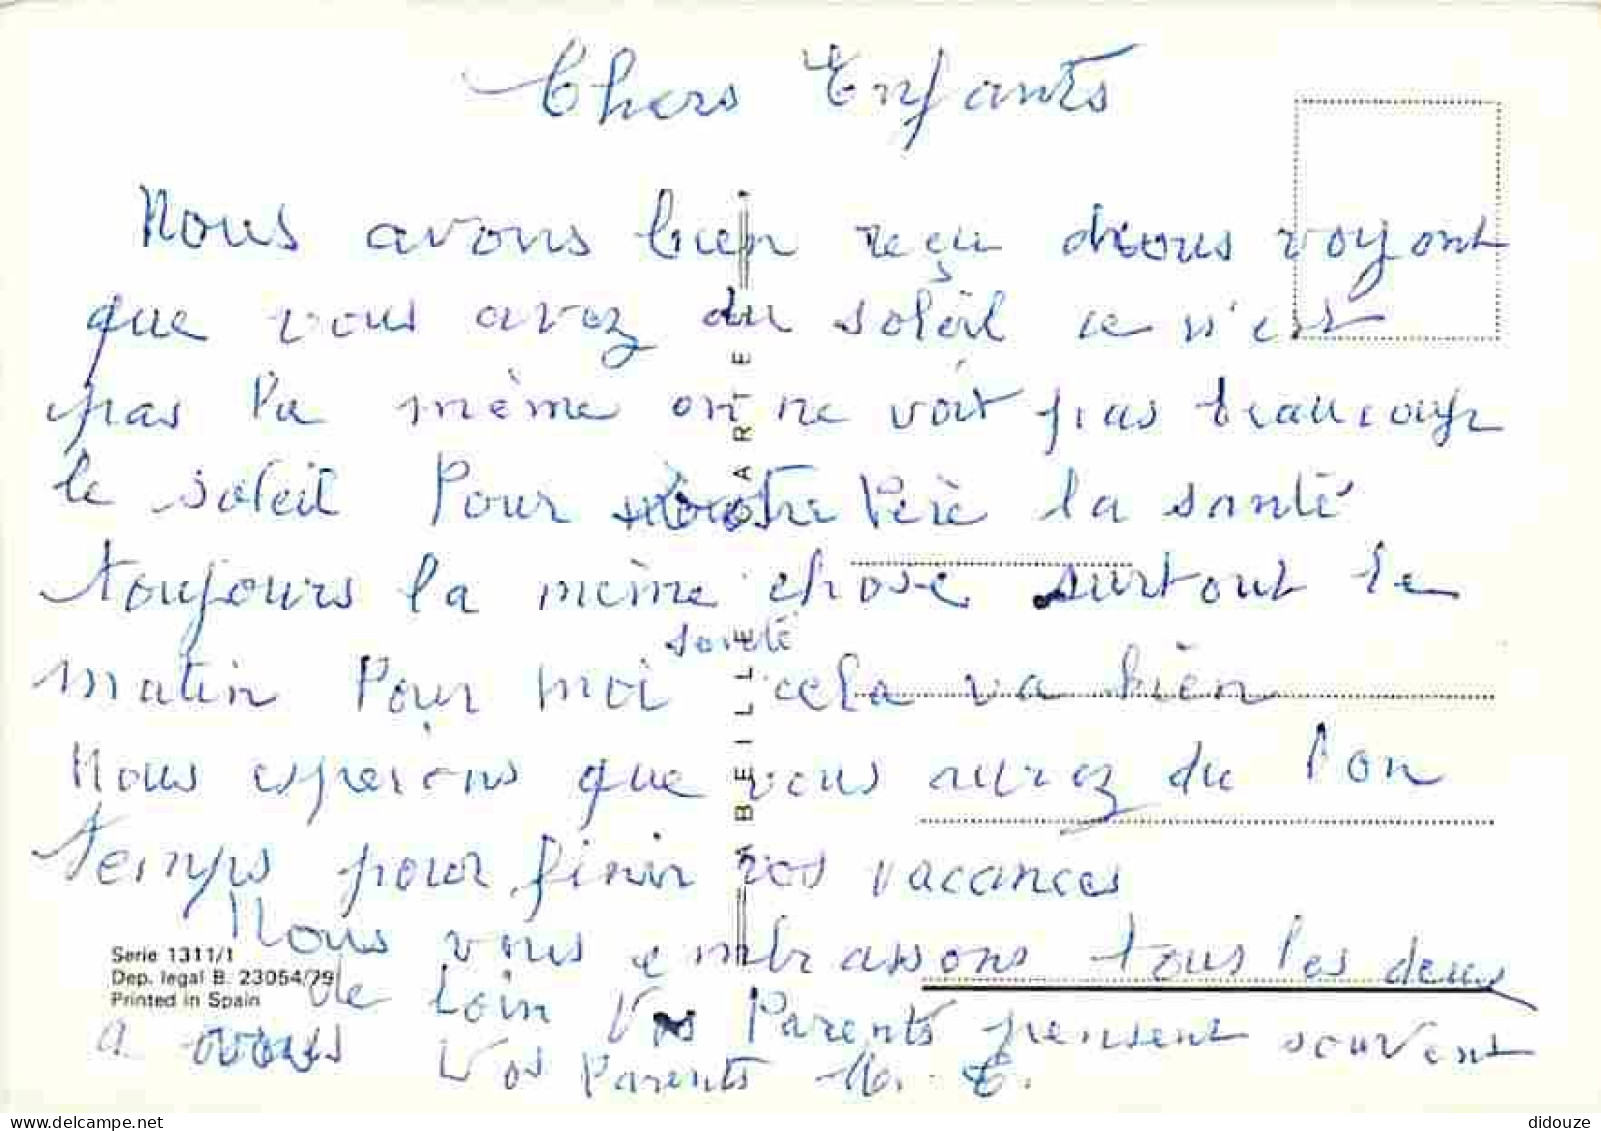 Chers Enfants
Nous avons bien reçu nous voyont
que vous avez du soleil ce n'est
pas la même on ne voit pas beaucoup
le soleil Pour votre Père la santé
toujours la même chose surtout le
santé
matin Pour moi cela va bien
Nous esperons que vous aurez du bon
temps pour finir vos vacances
Nous vous embrassons tous les deux
de loin Vos Parents pensent souvent
a vous Vos Parents M. C.
CARTE
ABEILLE
Serie 1311/1
Dep. legal B. 23054/79
Printed in Spain
didouze